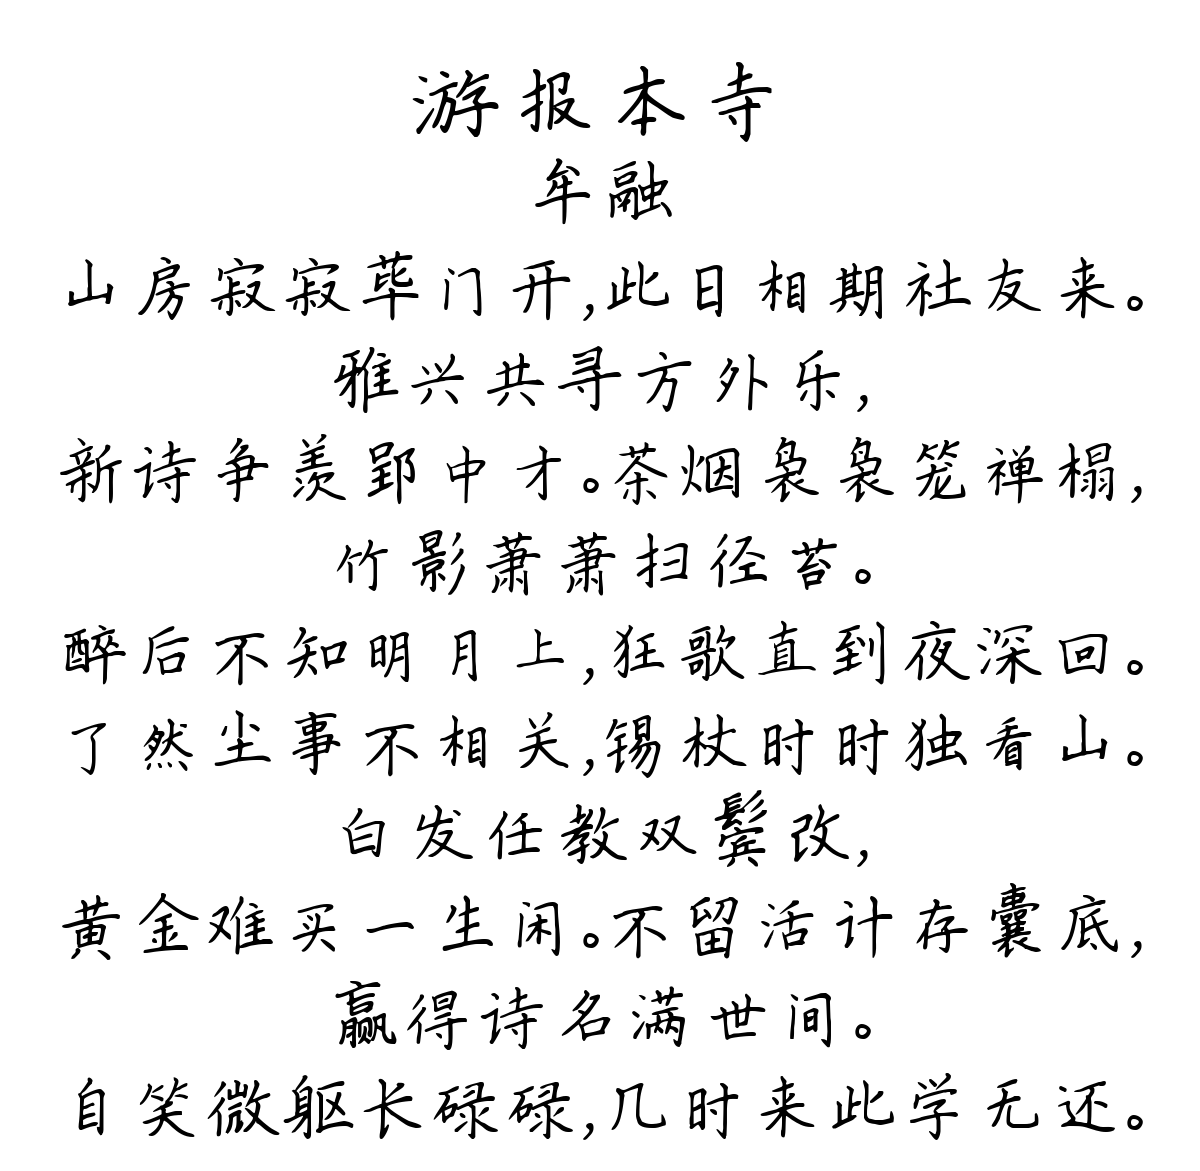 游报本寺
牟融
山房寂寂荜门开,此日相期社友来。
雅兴共寻方外乐,
新诗争羡郢中才。茶烟袅袅笼禅榻,
竹影萧萧扫径苔。
醉后不知明月上,狂歌直到夜深回。
了然尘事不相关,锡杖时时独看山。
白发任教双鬓改,
黄金难买一生闲。不留活计存囊底,
赢得诗名满世间。
自笑微躯长碌碌,几时来此学无还。